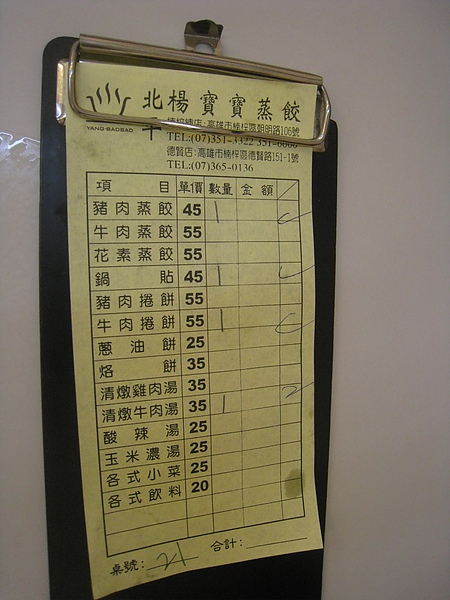 北楊寶寶蒸餃
YANG·BAOBAO
楠梓總店:高雄市楠梓區朝明路106號
TEL:(07)351-3322 351-6606
德賢店:高雄市楠梓區德賢路151-1號
TEL:(07)365-0136
項目 單價 數量 金額
豬肉蒸餃 45 1
牛肉蒸餃 55
花素蒸餃 55
鍋貼 45 1
豬肉捲餅 55
牛肉捲餅 55 1
蔥油餅 25
烙餅 35
清燉雞肉湯 35
清燉牛肉湯 35 1
酸辣湯 25
玉米濃湯 25
各式小菜 25
各式飲料 20
合計:
桌號: 21